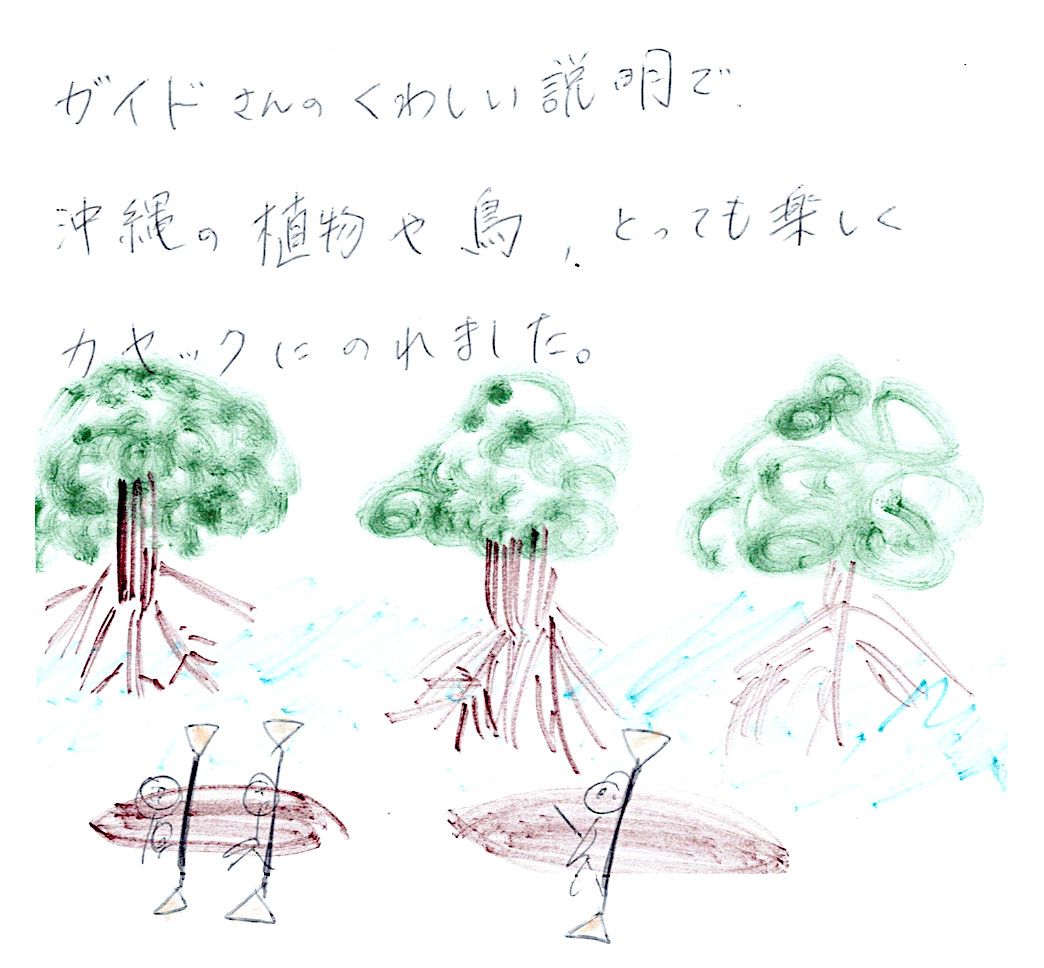 ガイドさんのくわしい説明で、
沖縄の植物や鳥、とっても楽しく
カヤックにのれました。